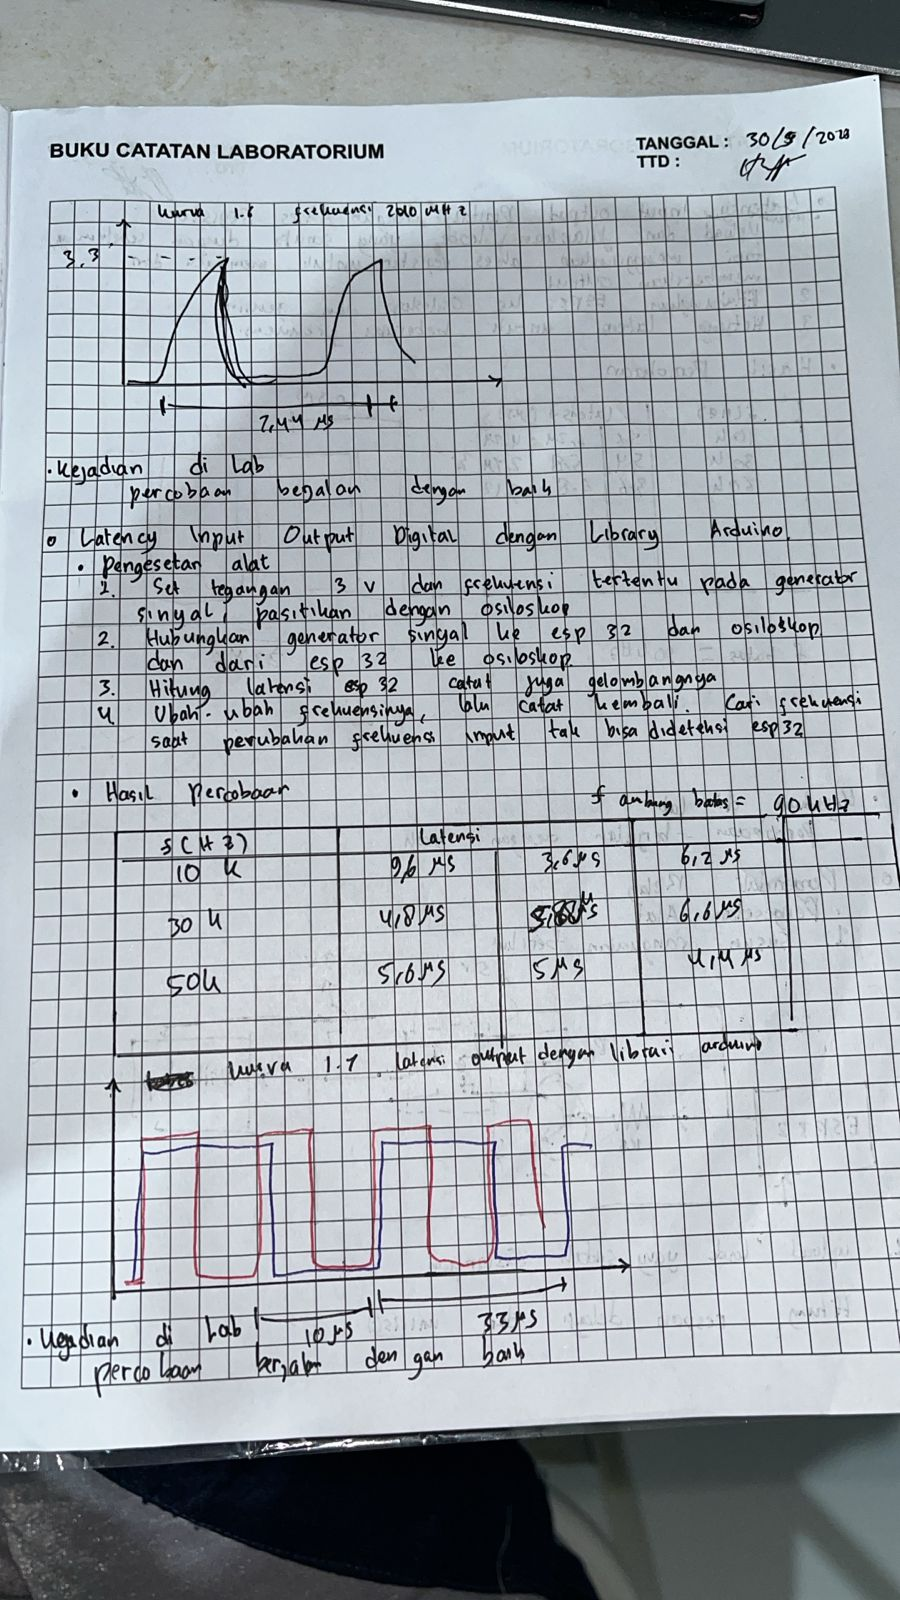 BUKU CATATAN LABORATORIUM
TANGGAL :
TTD :
kurva 1.6 frekuensi MHz
3,3
2,44 µs
• Kejadian di Lab
percobaan dengan baik
o Latency Input Output Digital dengan Library Arduino
• Pengesetan alat
1. Set tegangan 3 V dan frekuensi tertentu pada generator
sinyal, pastikan dengan osiloskop
2. Hubungkan generator sinyal ke esp 32 dan osiloskop
dan dari esp 32 ke osiloskop
3. Hitung latensi esp 32 catat juga gelombangnya
4. Ubah-ubah frekuensinya, lalu catat kembali. Cari frekuensi
saat perubahan frekuensi input tak bisa dideteksi esp32
• Hasil percobaan
f ambang batas = 90 kHz
f (Hz) Latensi
10 k 9,6 µs 3,6 µs 6,2 µs
30 k 4,8 µs 6,6 µs
50 k 5,6 µs 5 µs 4,4 µs
kurva 1.7 latensi output dengan librari arduino
10 µs 33 µs
• Kejadian di Lab
percobaan berjalan dengan baik